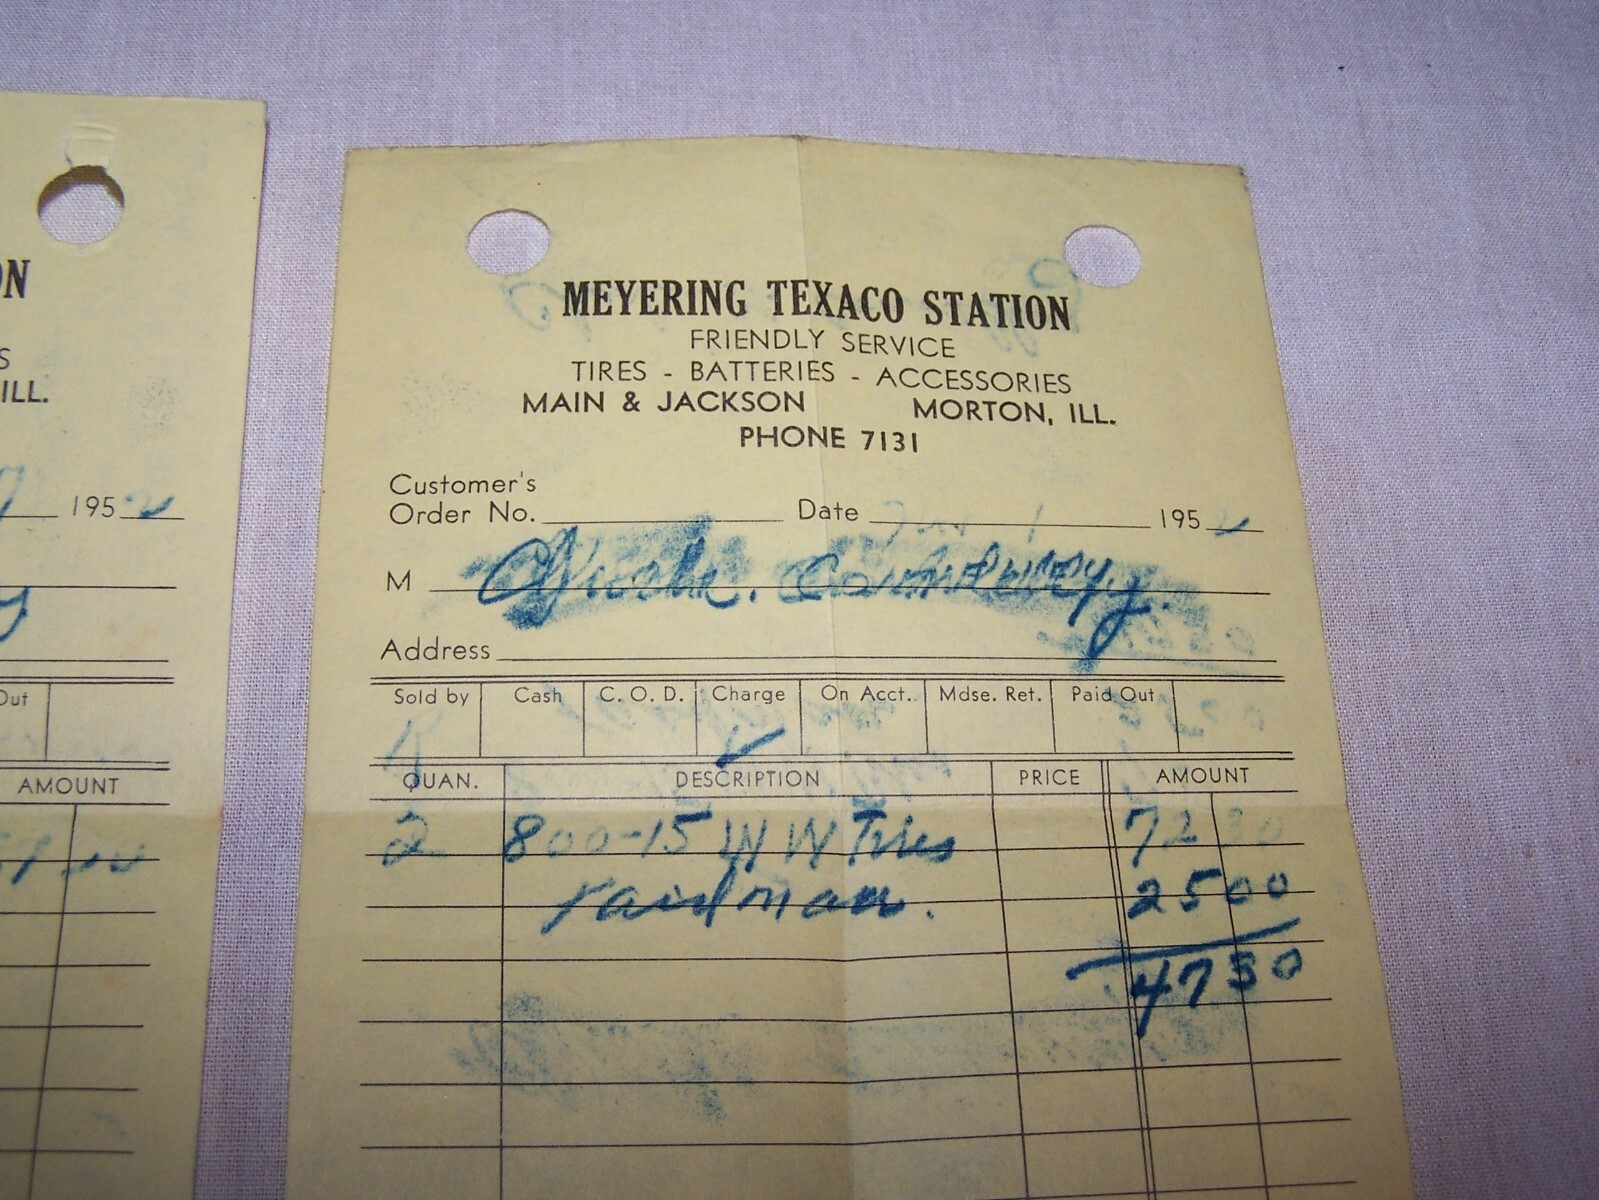 ON
S
ILL.
195
Out
AMOUNT
MEYERING TEXACO STATION
FRIENDLY SERVICE
TIRES - BATTERIES - ACCESSORIES
MAIN & JACKSON MORTON, ILL.
PHONE 7131
Customer's
Order No. Date 1 195
M
Address
Sold by Cash C. O. D. Charge On Acct. Mdse. Ret. Paid Out
QUAN. DESCRIPTION PRICE AMOUNT
2 800-15 W W Tires 72 30
2500
4730